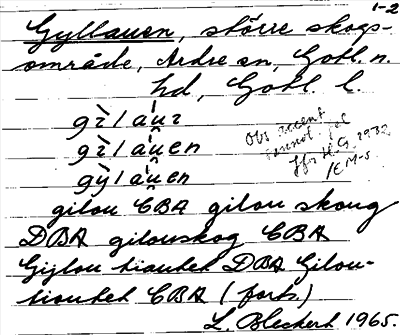 1-2
Gyllauen, större skogs-
område, Ardre sn, Gotl. n.
hd, Gotl. l.
gìlauı
gìlauen
gỳlauen
Obs accent
jfr H.G. 1932
/EM-s
gilou CBA gilou skoug
DBA gilouskog CBA
Gijlou tiauket DBA Gilou-
tiouket CBA (forts)
L. Bleckert 1965.